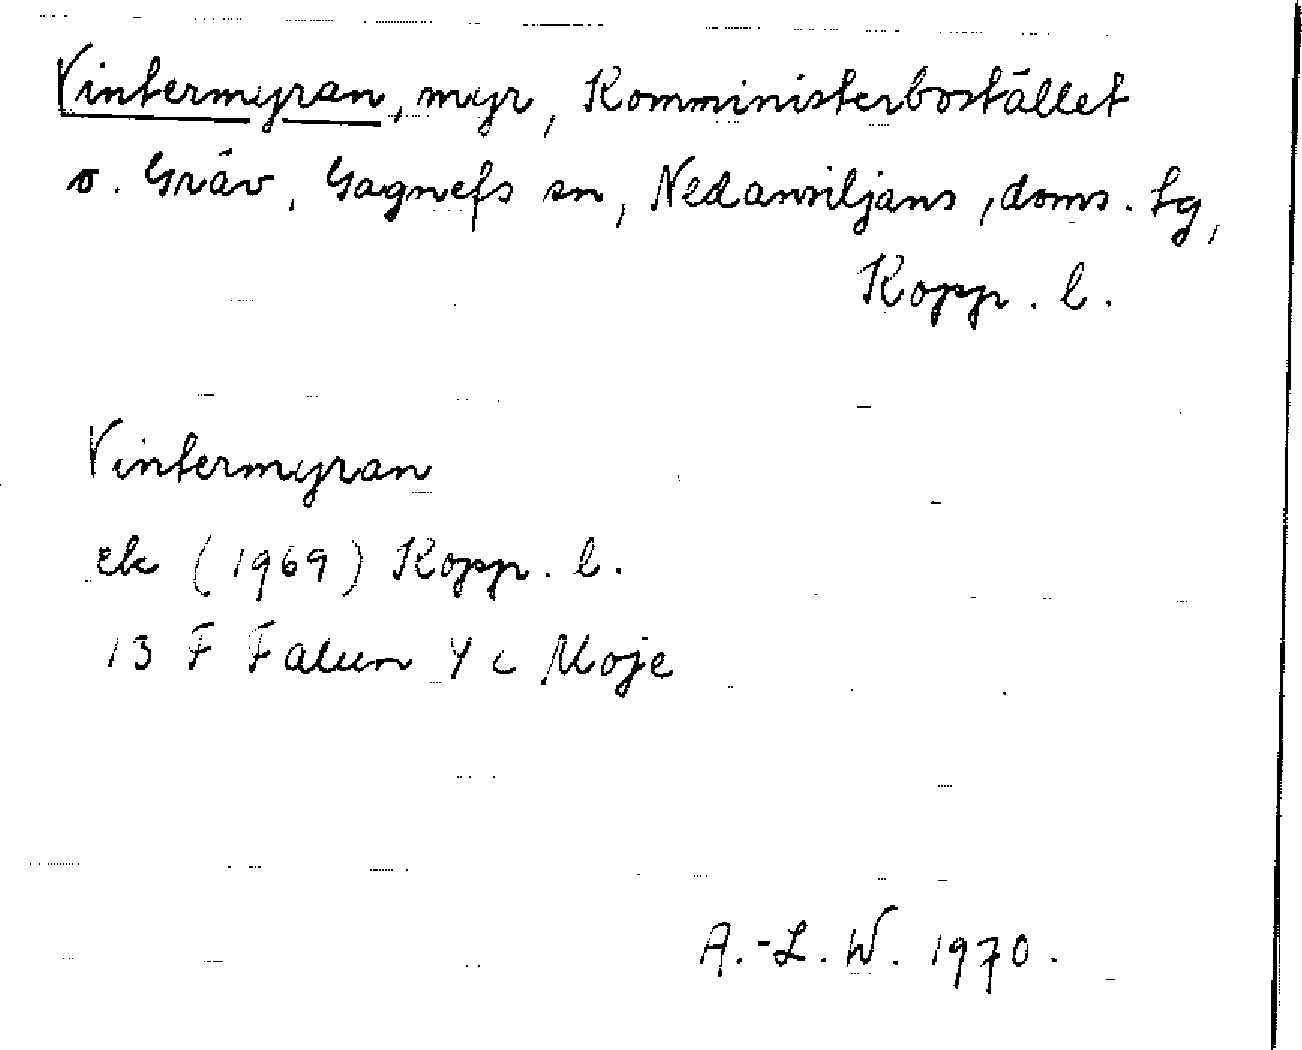 Vintermyran, myr, Komministerbostället
o. Gräv, Gagnefs sn, Nedansiljans, doms. tg,
Kopp. l.
Vintermyran
ek (1969) Kopp. l.
13 F Falun 4 c Moje
A.-L. W. 1970.